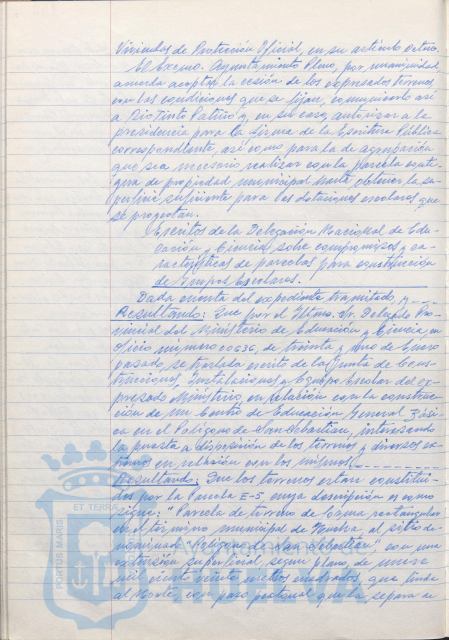 Viviendas de Protección Oficial, en su artículo octavo.
El Excmo. Ayuntamiento Pleno, por unanimidad,
acuerda aceptar la cesión de los expresados terrenos
con las condiciones que se fijan, comunicarlo así
a Rio Tinto Patiño y, en su caso, autorizar a la
presidencia para la firma de la Escritura Pública
correspondiente, así como para la de agrupación
que sea necesario realizar con la parcela contí-
gua de propiedad municipal hasta obtener la su-
perficie suficiente para las dotaciones escolares que
se proyectan.
Escritos de la Delegación Nacional de Edu-
cación y Ciencia, sobre compromisos y ca-
racterísticas de parcelas para construcción
de Grupos Escolares.
Dada cuenta del expediente tramitado, y
Resultando: Que por el Iltmo. Sr. Delegado Pro-
vincial del Ministerio de Educación y Ciencia en
oficio número de treinta y uno de Enero
pasado, se traslada escrito de la Junta de Cons-
trucciones, Instalaciones y Equipo Escolar del ex-
presado Ministerio en relación con la construc-
ción de un Centro de Educación General Bási-
ca en el Polígono de San Sebastian, interesando
la puesta a disposición de los terrenos y diversos ex-
tremos en relación con los mismos.
Resultando: Que los terrenos están constitui-
dos por la Parcela E-5 cuya descripción es como
sigue: "Parcela de terreno de forma rectangular
en el término municipal de Huelva al sitio de-
nominado "Polígono de San Sebastian", con una
extensión superficial, según plano, de nueve
mil ciento veinte metros cuadrados, que linda
al Norte, con paso peatonal que la separa de
PORTUS MARIS
ET TERRAE
Ayuntamiento
HUELVA